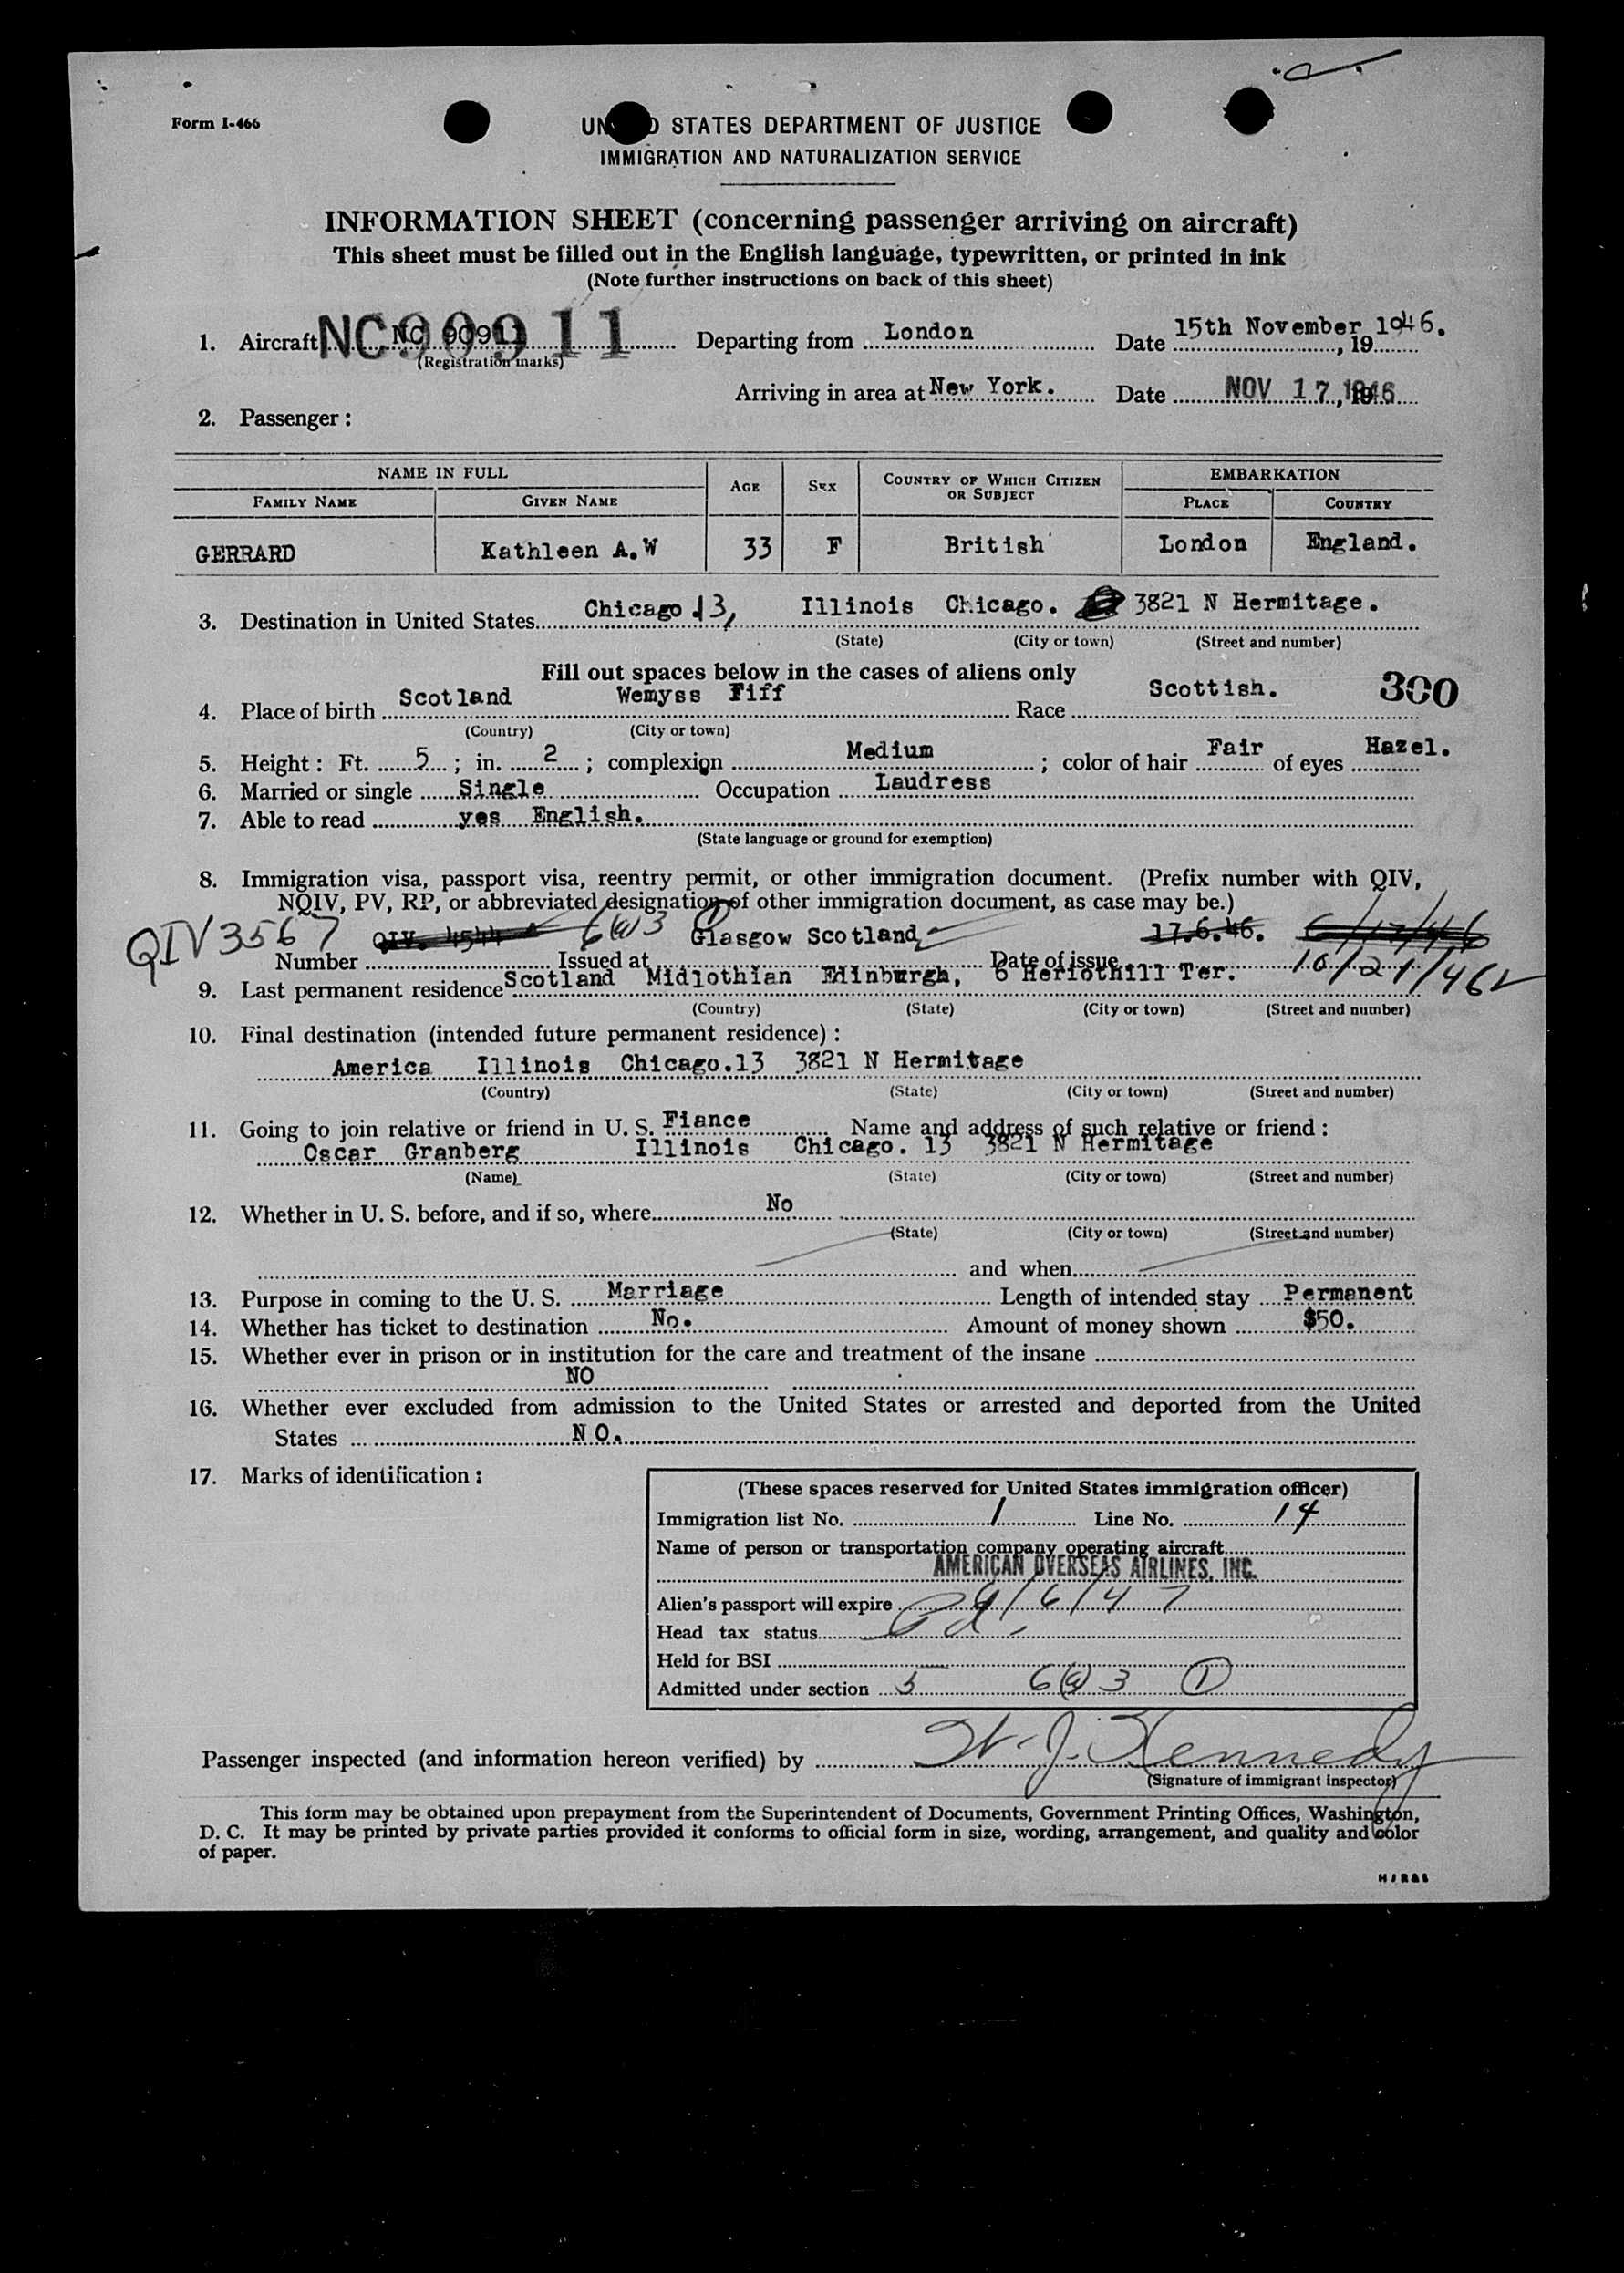 Form I-466
UNITED STATES DEPARTMENT OF JUSTICE
IMMIGRATION AND NATURALIZATION SERVICE
INFORMATION SHEET (concerning passenger arriving on aircraft)
This sheet must be filled out in the English language, typewritten, or printed in ink
(Note further instructions on back of this sheet)
1. Aircraft NC 90911 NC90911 Departing from London Date 15th November 1946. , 19
(Registration marks)
Arriving in area at New York. Date NOV 17 1946
2. Passenger:
NAME IN FULL AGE SEX COUNTRY OF WHICH CITIZEN OR SUBJECT EMBARKATION
FAMILY NAME GIVEN NAME PLACE COUNTRY
GERRARD Kathleen A.W 33 F British London England.
3. Destination in United States Chicago 13, Illinois Chicago. 3821 N Hermitage.
(State) (City or town) (Street and number)
Fill out spaces below in the cases of aliens only
300
4. Place of birth Scotland Wemyss Fiff Race Scottish.
(Country) (City or town)
5. Height: Ft. 5; in. 2; complexion Medium; color of hair Fair of eyes Hazel.
6. Married or single Single Occupation Laudress
7. Able to read yes English.
(State language or ground for exemption)
8. Immigration visa, passport visa, reentry permit, or other immigration document. (Prefix number with QIV,
NQIV, PV, RP, or abbreviated designation of other immigration document, as case may be.)
QIV 3567 QIV. 4544 6(a)3 (1) Glasgow Scotland, 17.6.46. 6/17/46
Number Issued at Date of issue 10/21/46
9. Last permanent residence Scotland Midlothian Edinburgh, 6 Heriothill Ter.
(Country) (State) (City or town) (Street and number)
10. Final destination (intended future permanent residence):
America Illinois Chicago.13 3821 N Hermitage
(Country) (State) (City or town) (Street and number)
11. Going to join relative or friend in U. S. Fiance Name and address of such relative or friend:
Oscar Granberg Illinois Chicago. 13 3821 N Hermitage
(Name) (State) (City or town) (Street and number)
12. Whether in U. S. before, and if so, where No
(State) (City or town) (Street and number)
and when
13. Purpose in coming to the U. S. Marriage Length of intended stay Permanent
14. Whether has ticket to destination No. Amount of money shown $50.
15. Whether ever in prison or in institution for the care and treatment of the insane
NO
16. Whether ever excluded from admission to the United States or arrested and deported from the United
States NO.
17. Marks of identification:
(These spaces reserved for United States immigration officer)
Immigration list No. 1 Line No. 14
Name of person or transportation company operating aircraft
AMERICAN OVERSEAS AIRLINES, INC.
Alien's passport will expire 9/6/47
Head tax status Pd.
Held for BSI
Admitted under section 5 6(a)3 (1)
Passenger inspected (and information hereon verified) by W. J. Kennedy
(Signature of immigrant inspector)
This form may be obtained upon prepayment from the Superintendent of Documents, Government Printing Offices, Washington,
D. C. It may be printed by private parties provided it conforms to official form in size, wording, arrangement, and quality and color
of paper.